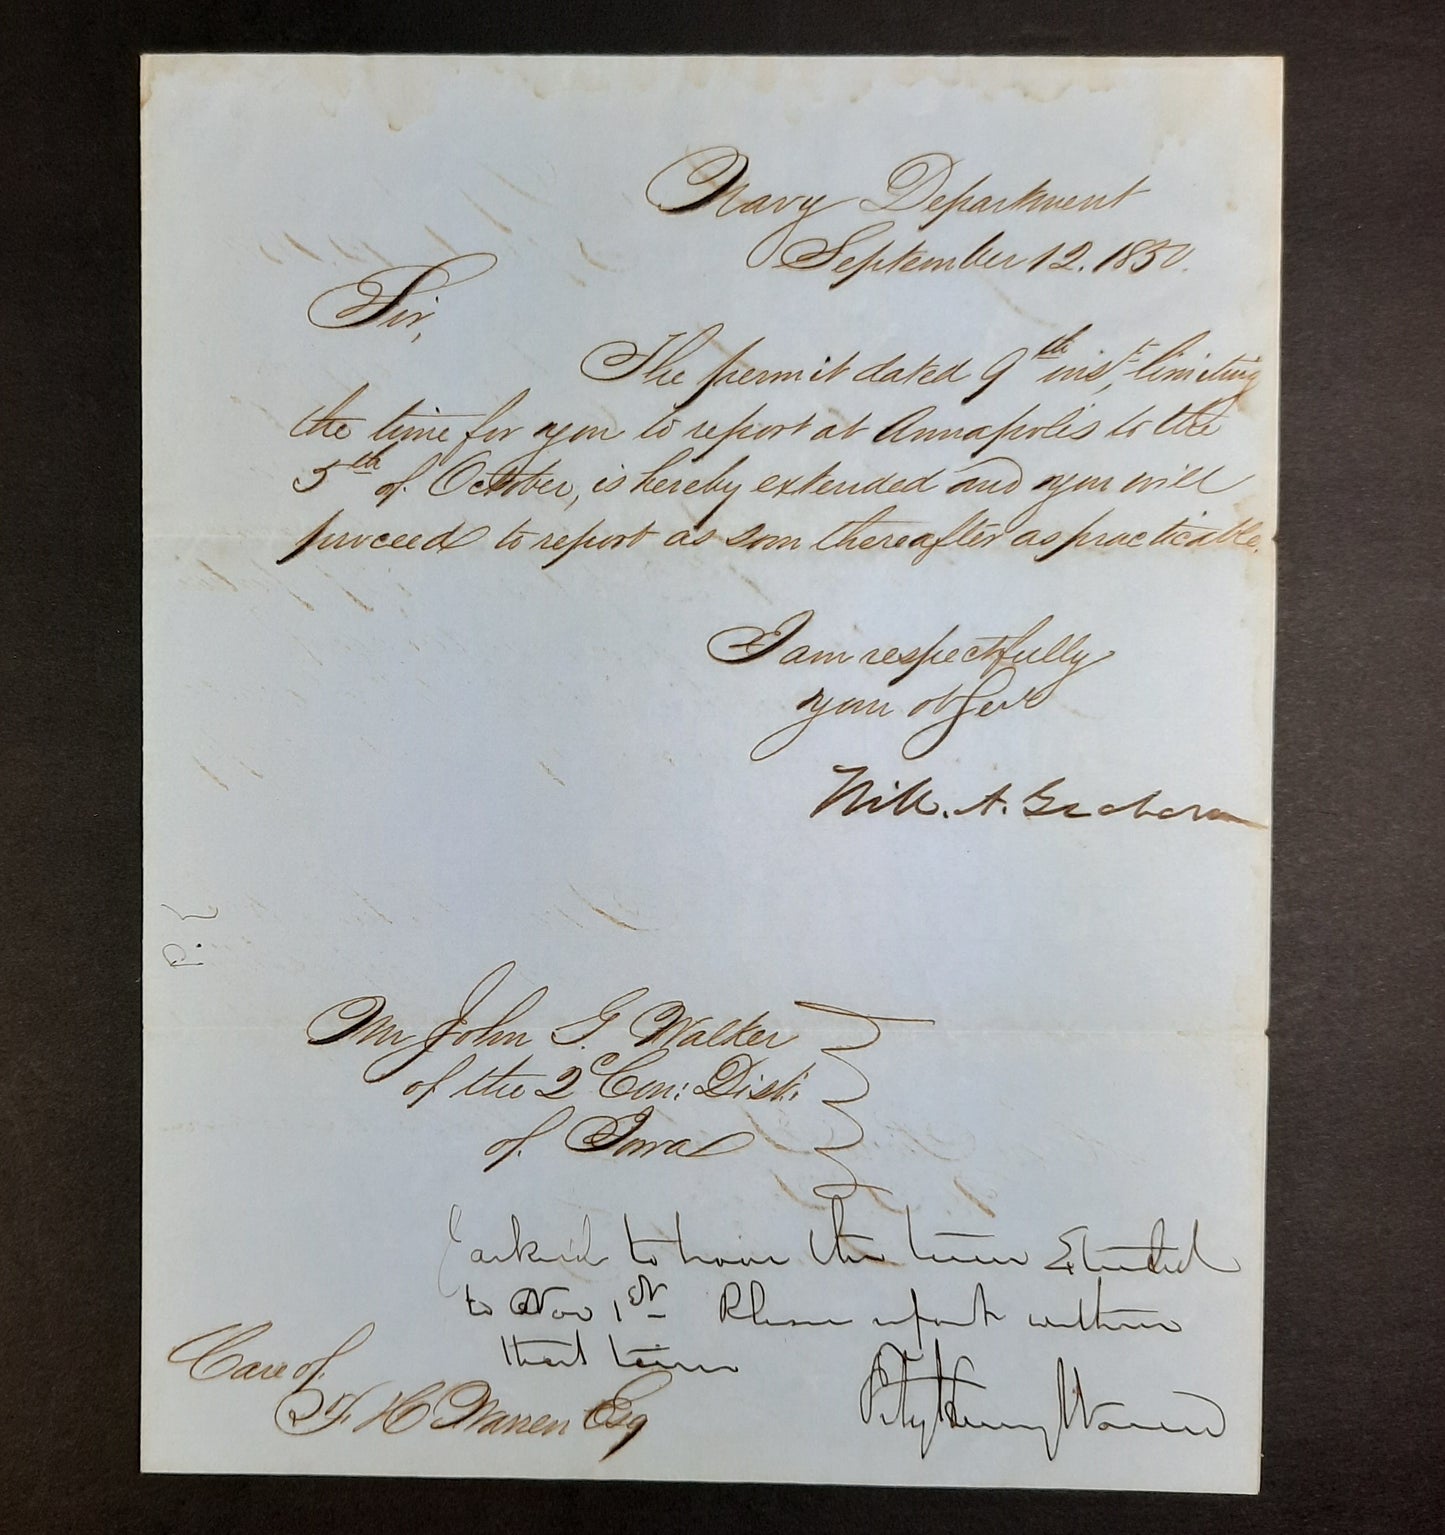 Navy Department
September 12. 1850.
Sir,
The permit dated 9th inst, limiting
the time for you to report at Annapolis to the
5th of October, is hereby extended and you will
proceed to report as soon thereafter as practicable.
I am respectfully
your ob Servt
Will. A. Graham
Mr John G. Walker
of the 2d Con: Dist:
of Iowa
I asked to have the time Extended
to Nov 1st Please report within
that time
Fitz Henry Warren
Care of
F. H Warren Esq